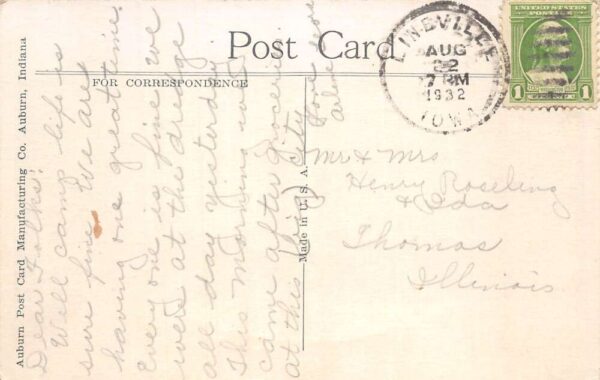 Post Card
FOR CORRESPONDENCE
Auburn Post Card Manufacturing Co. Auburn, Indiana
Made in U. S. A.
LINEVILLE
AUG
22
7 PM
1932
IOWA
UNITED STATES POSTAGE
1 1
Dear Folks:
Well camp life is
sure fine. We are
having one great time.
Every one is fine. We
were at the dredge
all day yesterday
This morning we
came after groceries
at this (big) city
Love you
Mr & Mrs
Henry Roseling
& Ida
Thomas
Illinois